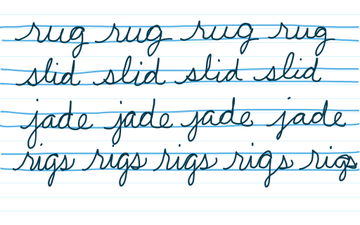 rug rug rug rug
slid slid slid slid
jade jade jade jade
rigs rigs rigs rigs rigs